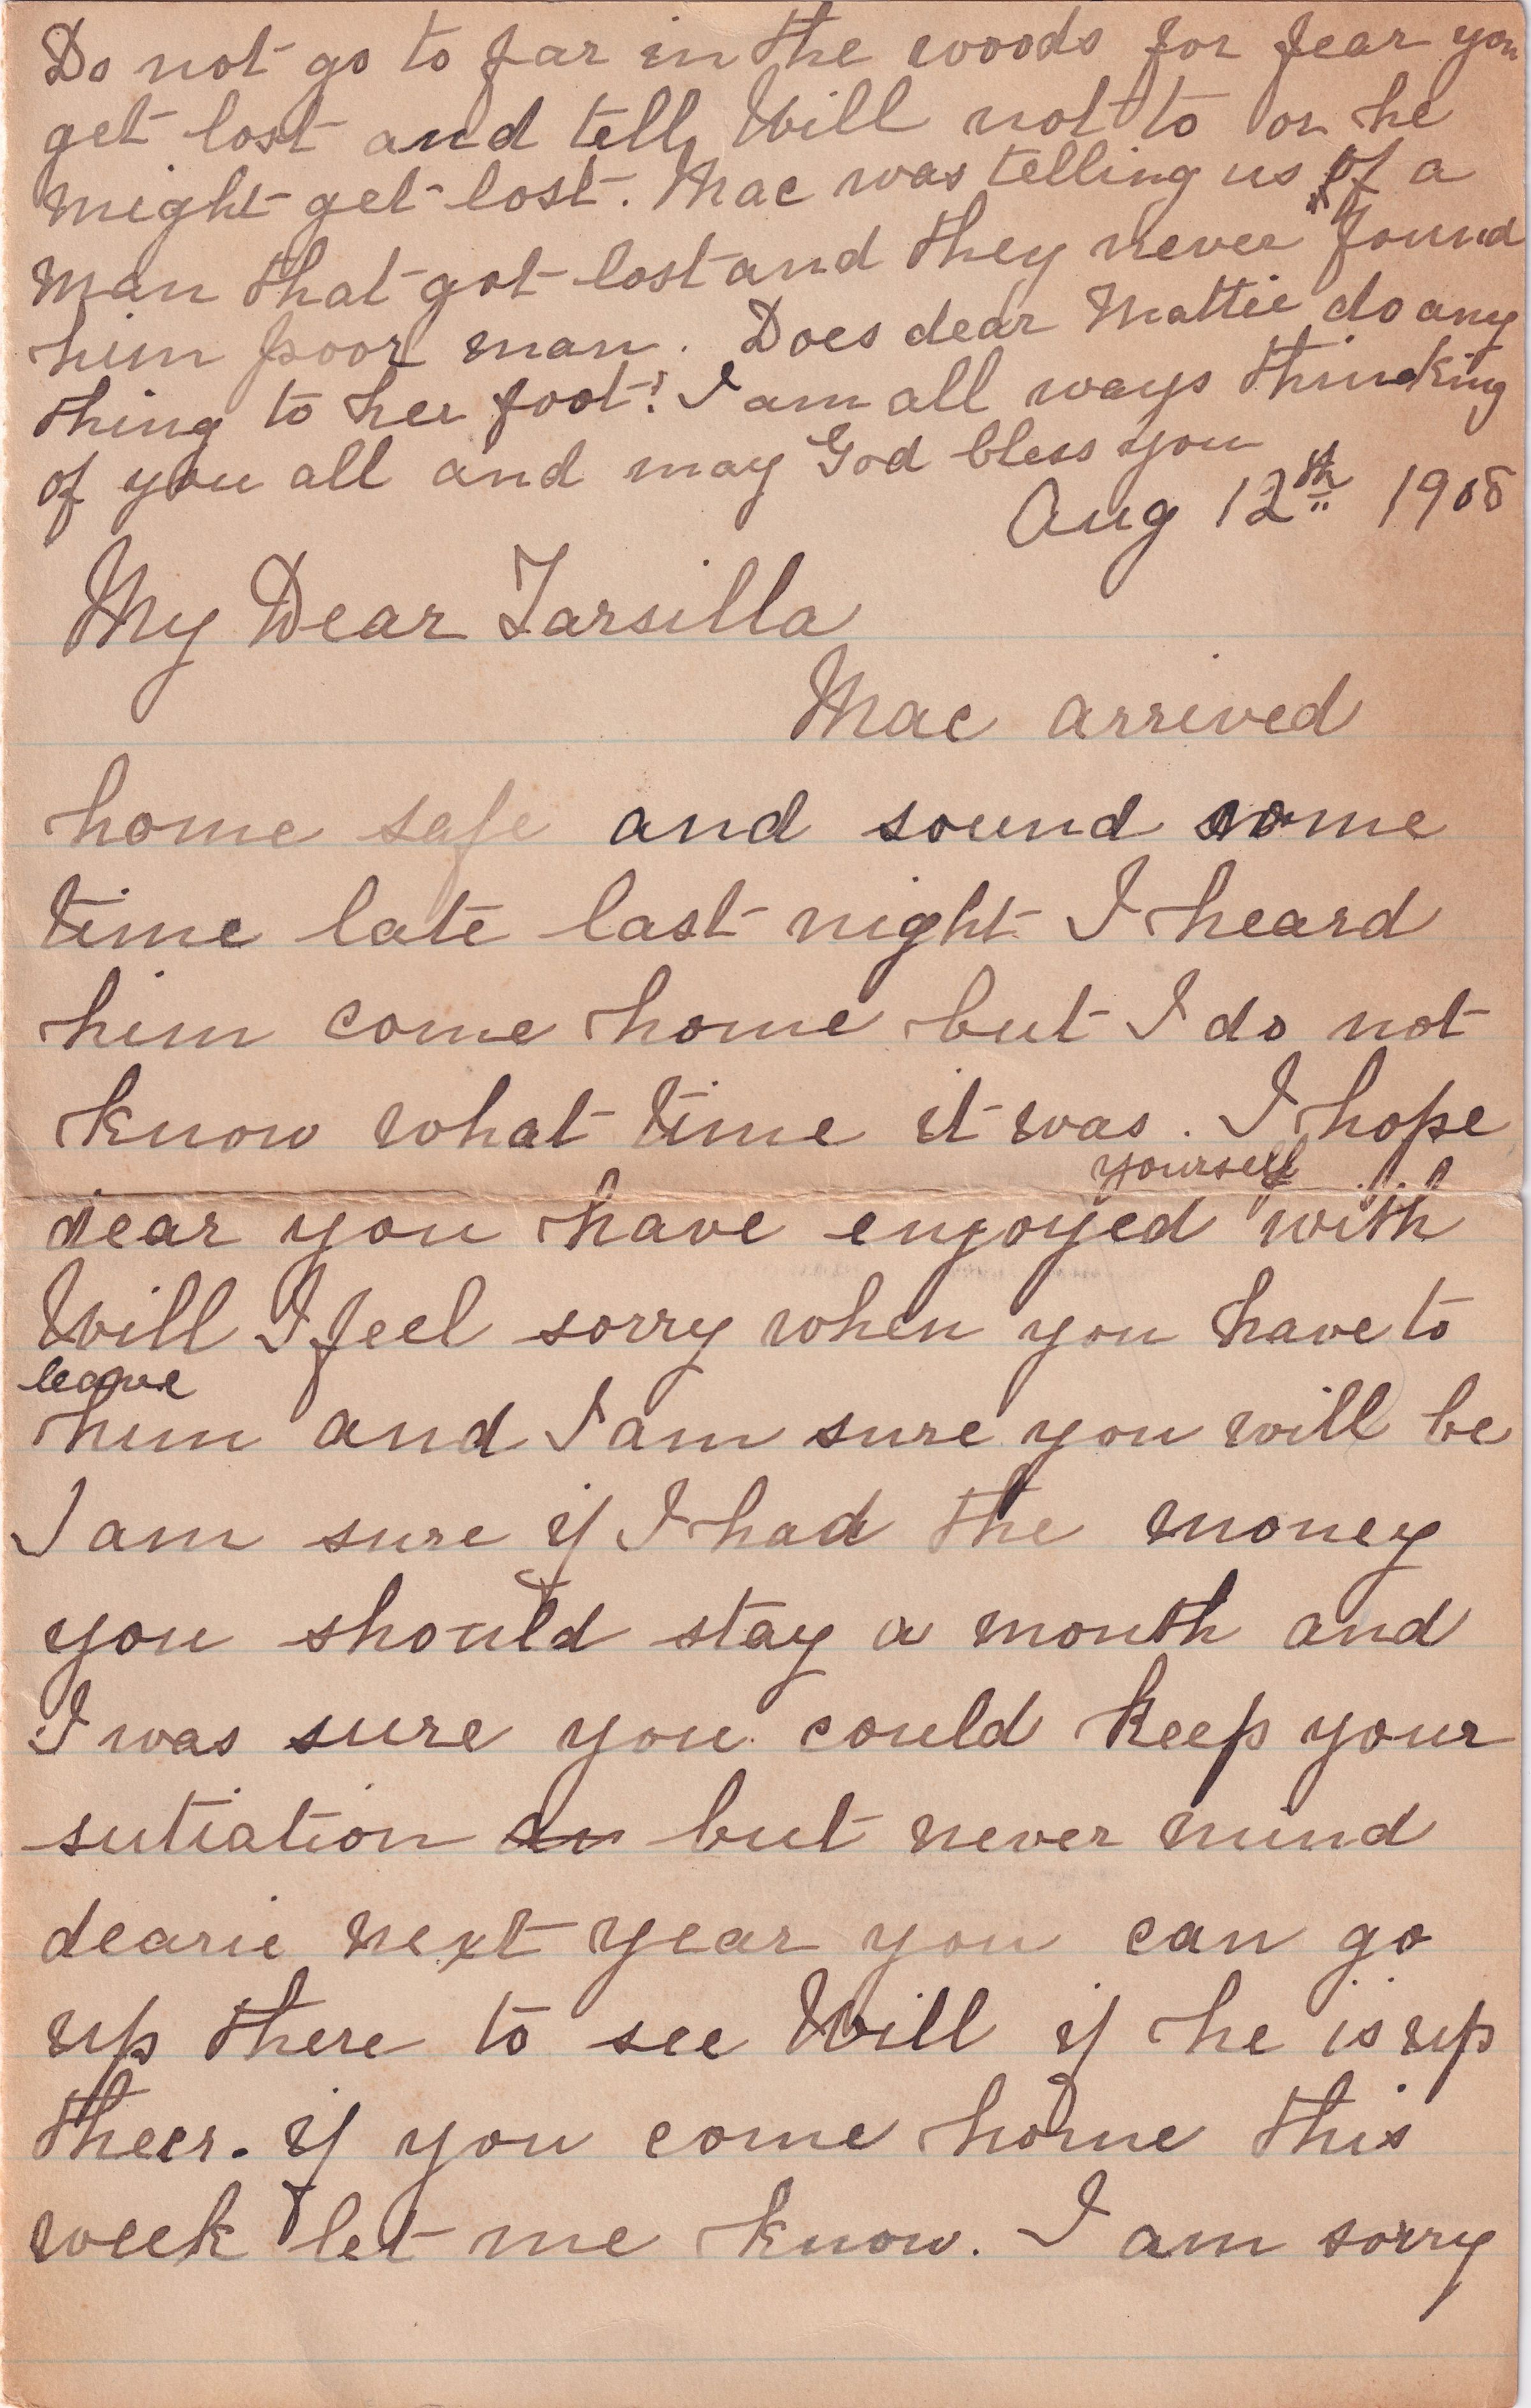 Do not go to far in the woods for fear you
get lost and tell Will not to or he
might get lost. Mac was telling us of a
man that got lost and they never found
him poor man. Does dear Mattie do any
thing to her foot? I am all ways thinking
of you all and may God bless you
Aug 12th 1908
My Dear Tarsilla
Mac arrived
home safe and sound some
time late last night I heard
him come home but I do not
know what time it was. I hope
yourself
dear you have enjoyed with
Will I feel sorry when you have to
leave
him and I am sure you will be
I am sure if I had the money
you should stay a month and
I was sure you could keep your
sutiation but never mind
dearie next year you can go
up there to see Will if he is up
theer. if you come home this
week let me know. I am sorry